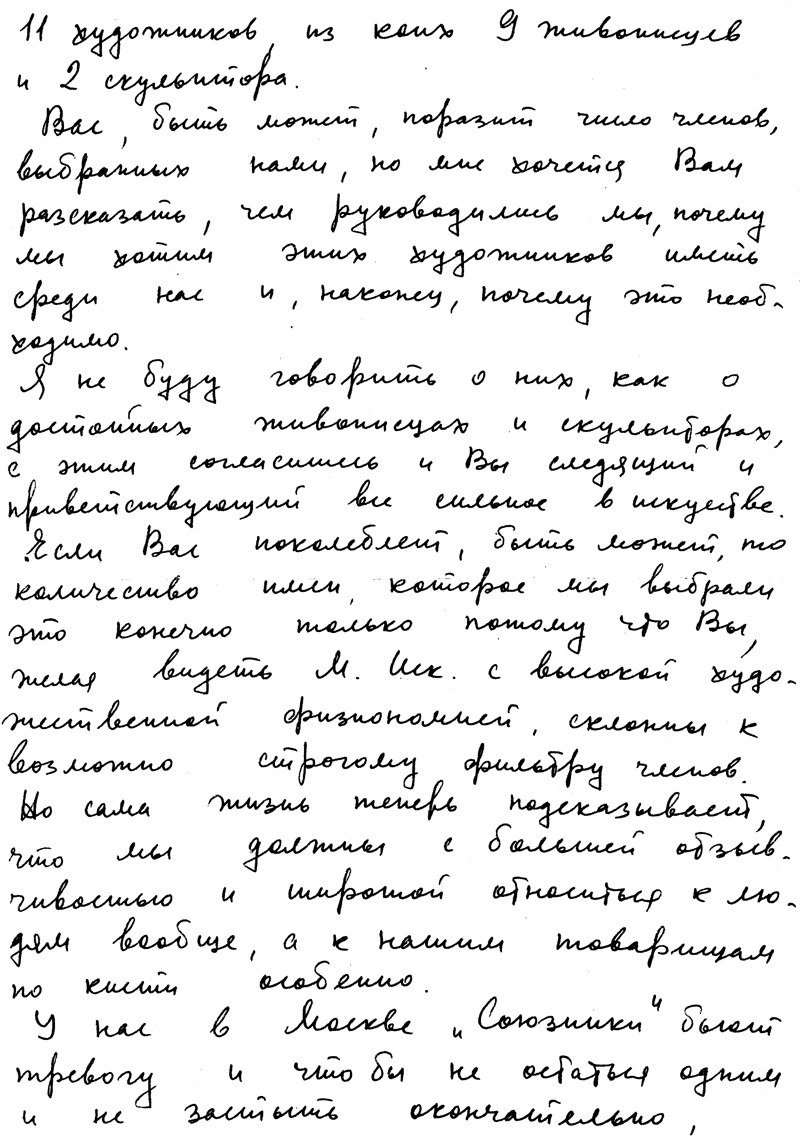 11 художников, из коих 9 живописцев
и 2 скульптора.
Вас, быть может, поразит число членов,
выбранных нами, но мне хочется Вам
разсказать, чем руководились мы, почему
мы хотим этих художников иметь
среди нас и, наконец, почему это необ-
ходимо.
Я не буду говорить о них, как о
достойных живописцах и скульпторах,
с этим согласитесь и Вы следящий и
приветствующий все сильное в искустве.
Если Вас поколеблет, быть может, то
количество имен, которое мы выбрали
это конечно только потому что Вы,
желая видеть М. Иск. с высокой худо-
жественной физиономией, склонны к
возможно строгому фильтру членов.
Но сама жизнь теперь подсказывает,
что мы должны с большей отзыв-
чивостью и широтой относиться к лю-
дям вообще, а к нашим товарищам
по кисти особенно.
У нас в Москве „Союзники" бьют
тревогу и что бы не остаться одним
и не застыть окончательно,